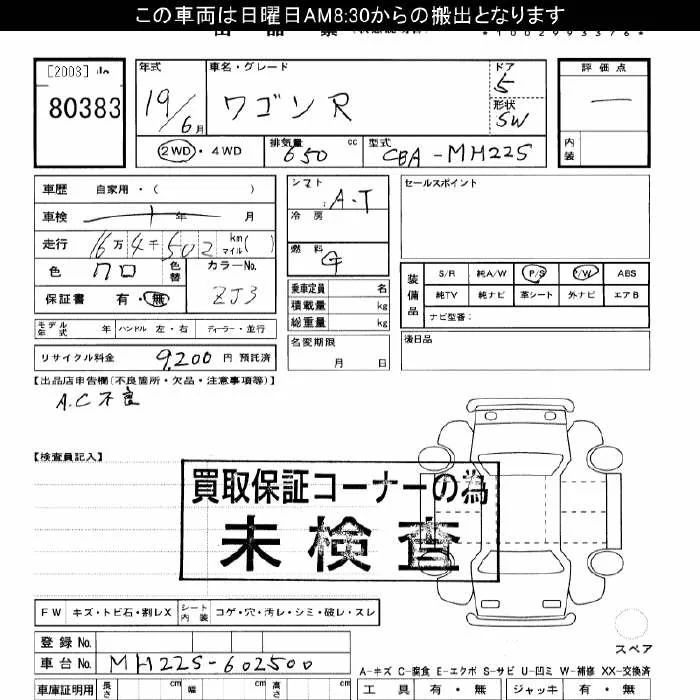 この車両は日曜日AM8:30からの搬出となります
*1002993376*
[2003]
80383
年式
19/6月
車名・グレード
ワゴンR
ドア
5
形状
SW
評価点
内装
2WD・4WD
排気量 650 cc
型式 CBA-MH22S
車歴 自家用・( )
車検 年 月
走行 16万4千502 km マイル( )
色 クロ 色替
カラーNo. ZJ3
保証書 有・無
モデル年式 年 ハンドル 左・右 ディーラー・並行
リサイクル料金 9,200 円 預託済
シフト A.T
冷房
燃料 G
乗車定員 名
積載量 kg
総重量 kg
名変期限
月 日
セールスポイント
装備品
S/R 純A/W P/S P/W ABS
純TV 純ナビ 革シート 外ナビ エアB
ナビ型番:
後日品
【出品店申告欄(不良箇所・欠品・注意事項等)】
A.C不良
【検査員記入】
買取保証コーナーの為
未検査
FW キズ・トビ石・割レX シート内装 コゲ・穴・汚レ・シミ・破レ・スレ
スペア
登録No.
車台No. MH22S-602500
A-キズ C-腐食 E-エクボ S-サビ U-凹ミ W-補修 XX-交換済
車庫証明用 長さ cm 幅 cm 高さ cm
工具 有・無 ジャッキ 有・無